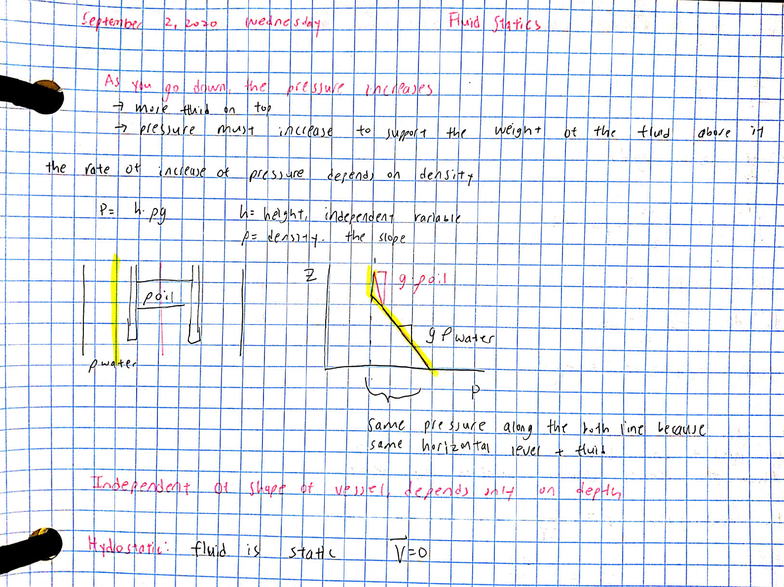 September 2, 2020 Wednesday Fluid Statics
As you go down, the pressure increases
→ more fluid on top
→ pressure must increase to support the weight of the fluid above it
the rate of increase of pressure depends on density
P= h·ρg h= height, independent variable
ρ= density. the slope
Z g·ρoil
ρoil
g ρwater
ρwater
P
same pressure along the both line because
same horizontal level + fluid
Independent of shape of vessel, depends only on depth
Hydrostatic: fluid is static V⃗=0